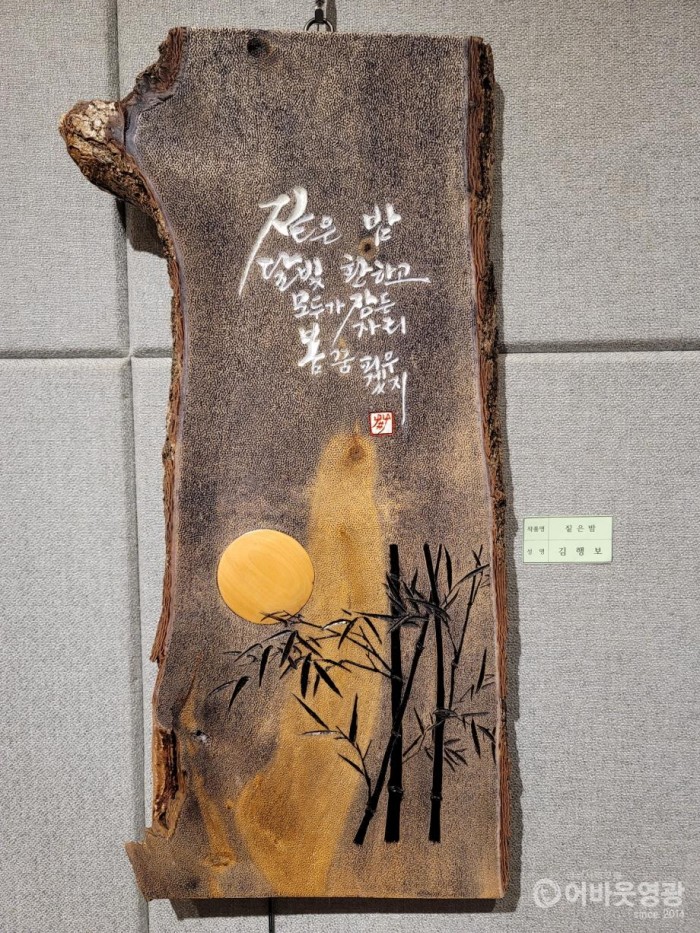 짙은 밤
달빛 환한고
모두가 잠든
자리
봄꿈 피우
겠지
작품명 짙은밤
성명 김행보
어바웃영광
since 2014